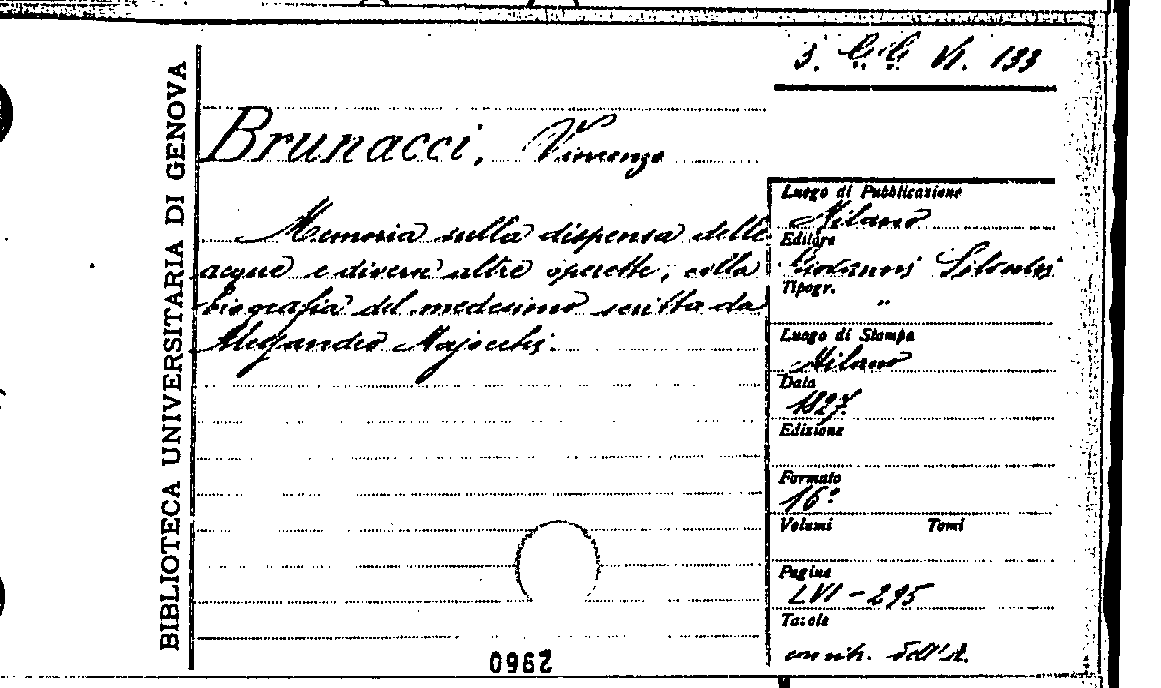 3. G.G VI. 133
BIBLIOTECA UNIVERSITARIA DI GENOVA
Brunacci, Vincenzo
Memoria sulla dispensa delle
acque e diverse altre operette, colla
biografia del medesimo scritta da
Alessandro Majocchi.
Luogo di Pubblicazione
Milano
Editore
Giovanni Silvestri
Tipogr.
"
Luogo di Stampa
Milano
Data
1827.
Edizione
Formato
16°
Volumi Tomi
Pagine
LVI - 295
Tavole
con ritr. dell'A.
2960